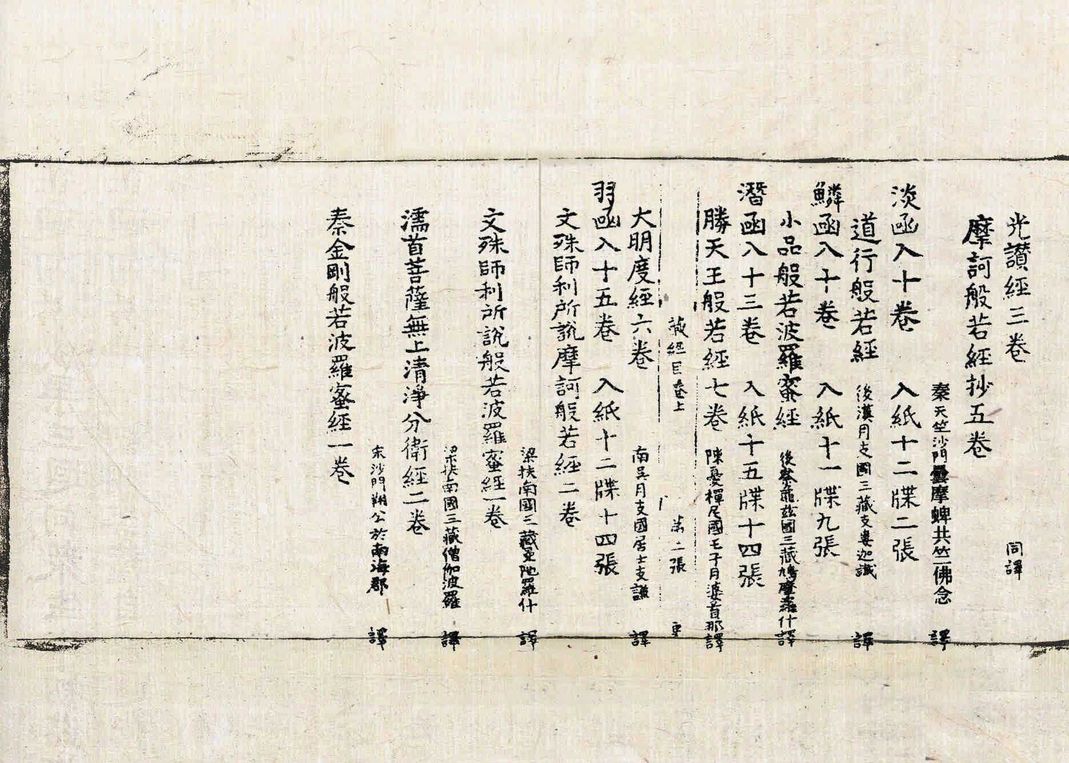 光讃經三卷 同譯
摩訶般若經抄五卷
秦天竺沙門曇摩蜱共竺佛念 譯
淡凾入十卷 入紙十二牒二張
道行般若經 後漢月支國三藏支婁迦讖 譯
鱗凾入十卷 入紙十一牒九張
小品般若波羅蜜經 後秦龜茲國三藏鳩摩羅什譯
潛凾入十三卷 入紙十五牒十四張
勝天王般若經七卷 陳憂禪尼國王子月婆首那譯
藏經目卷上 第二張
大明度經六卷 南吳月支國居士支謙 譯
羽凾入十五卷 入紙十二牒十四張
文殊師利所說摩訶般若經二卷
梁扶南國三藏曼陁羅什 譯
文殊師利所說般若波羅蜜經一卷
梁扶南國三藏僧伽波羅 譯
濡首菩薩無上清淨分衛經二卷
宋沙門翔公於南海郡 譯
秦金剛般若波羅蜜經一卷